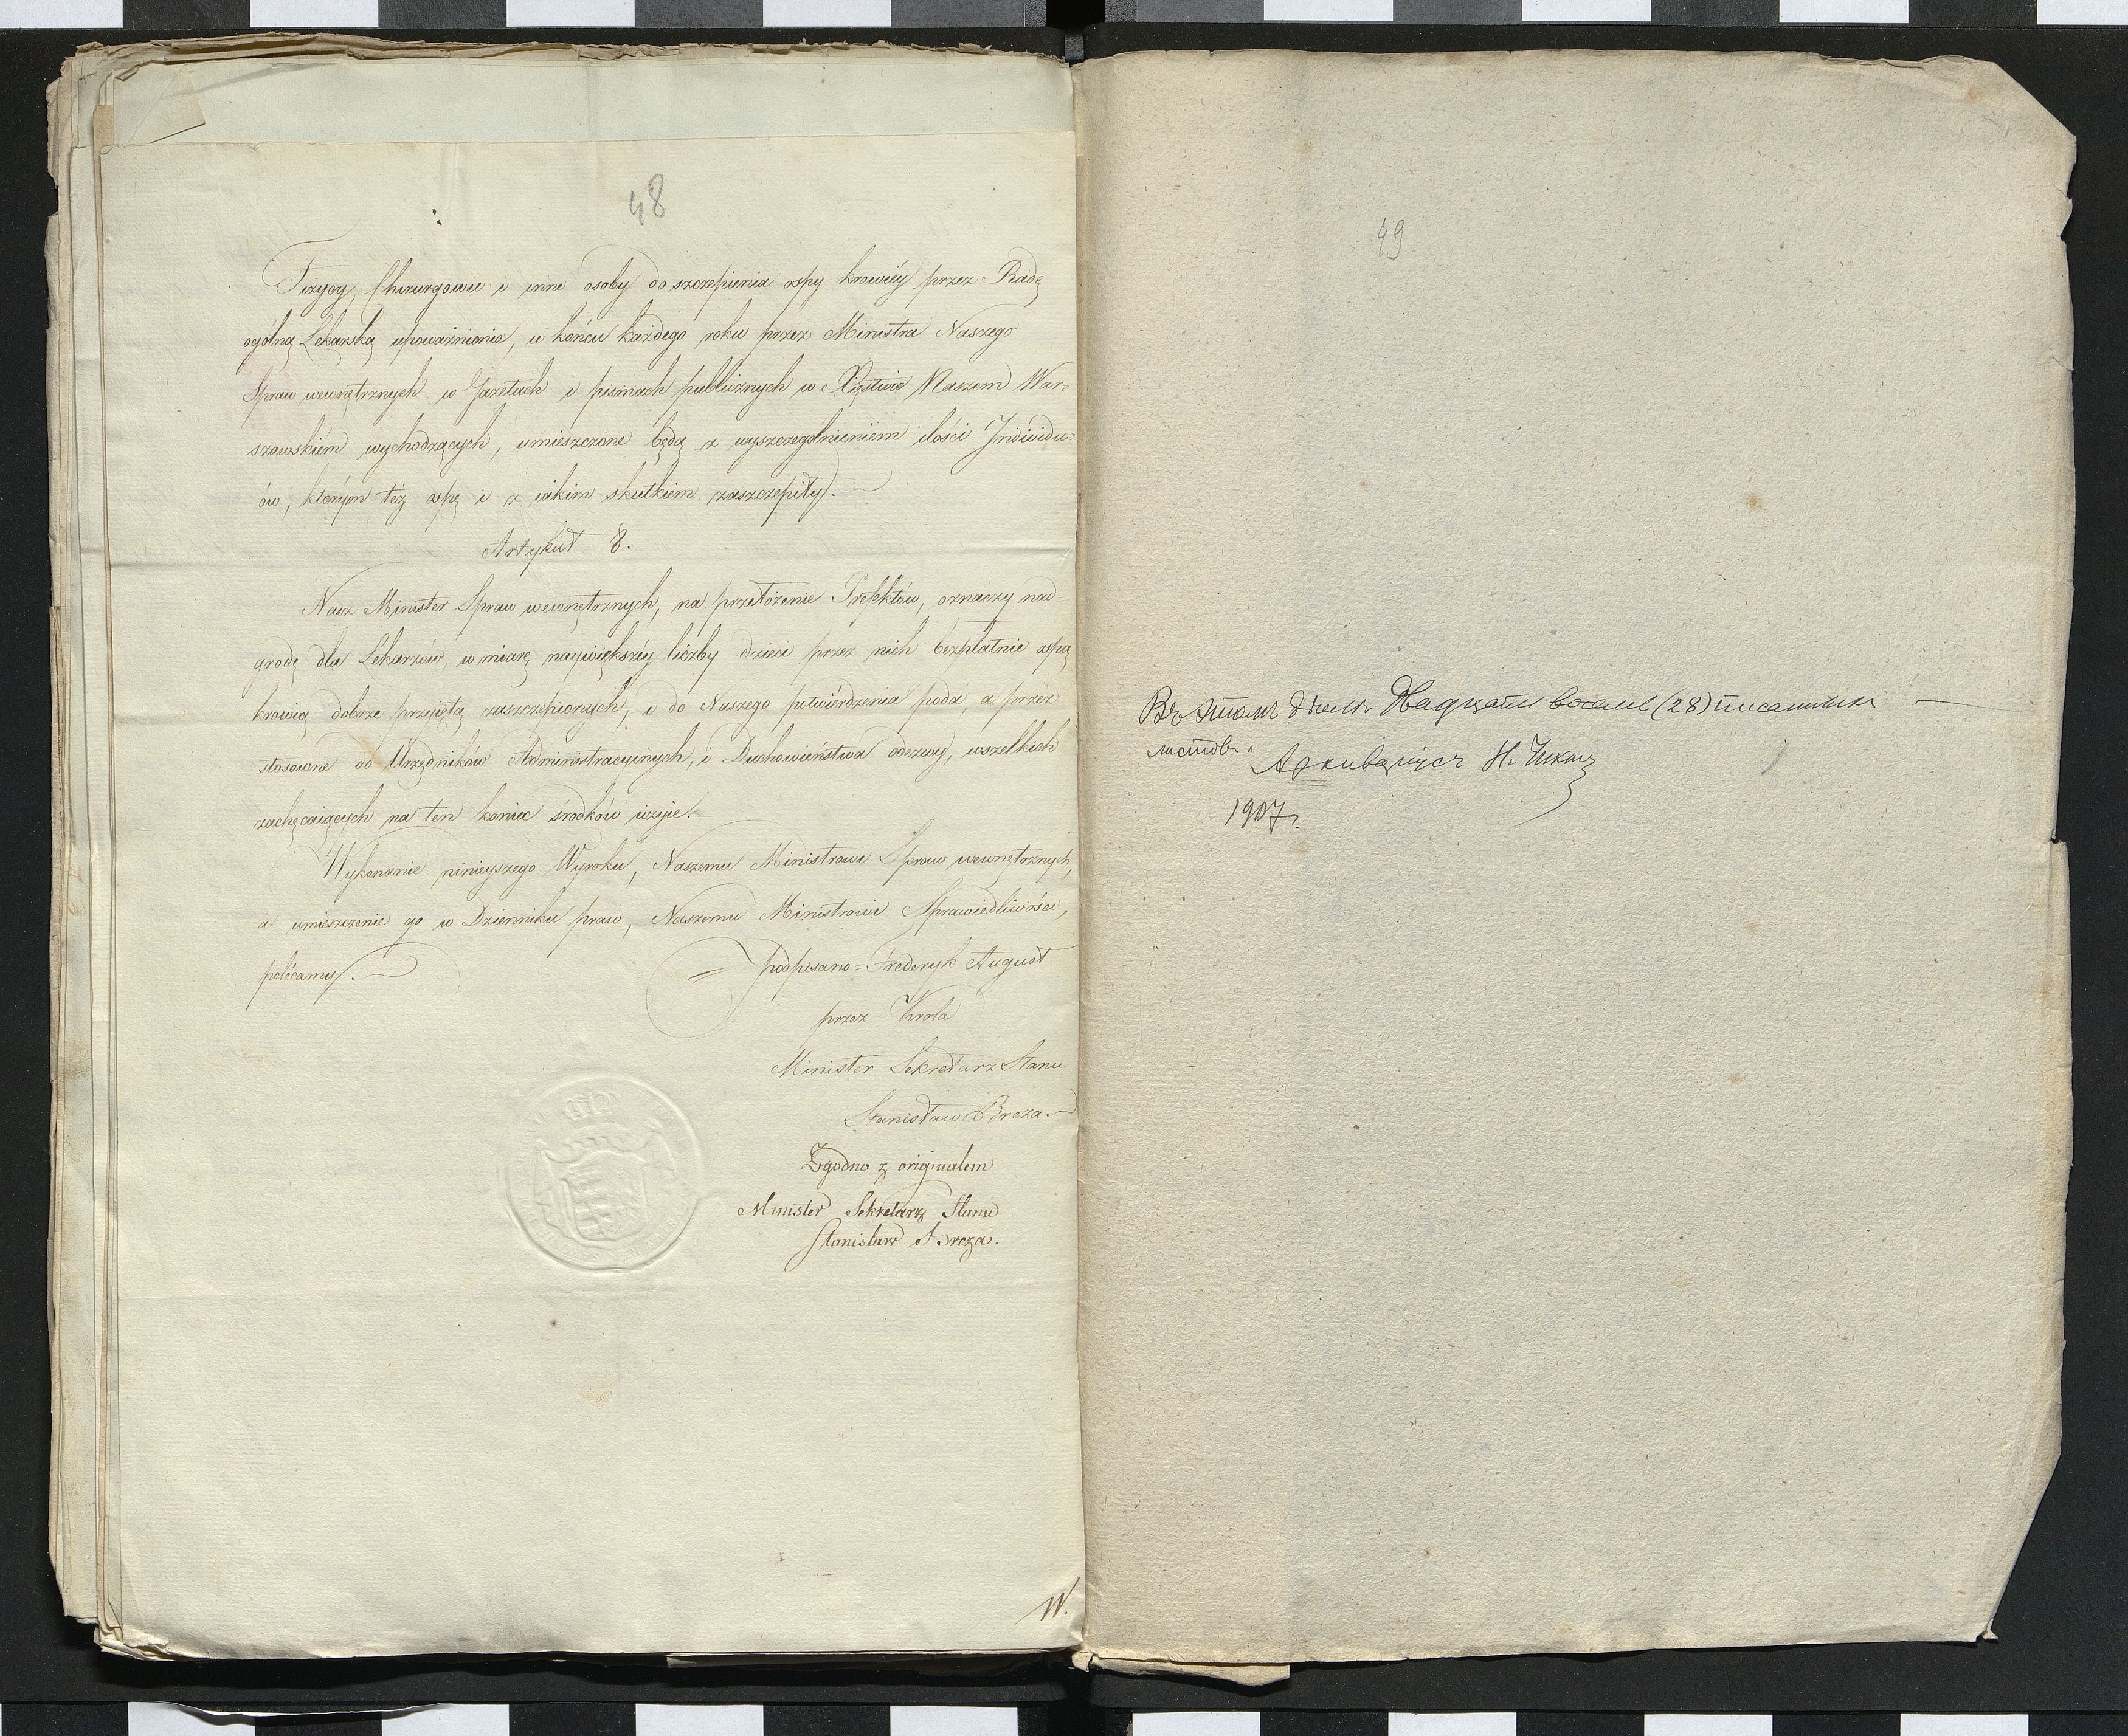 48
Fizycy, Chirurgowie i inne osoby do szczepienia ospy krowiéy przez Radę
ogólną Lekarską upoważnione, w końcu każdego roku przez Ministra Naszego
Spraw wewnętrznych w Gazetach i pismach publicznych w Xięstwie Naszem War-
szawskiém wychodzących, umieszczone będą z wyszczególnieniem ilości Individu-
ów, którym téż ospę i z iakim skutkiem zaszczepiły.
Artykuł 8.
Nasz Minister Spraw wewnętrznych, na przełożenie Prefektów, oznaczy nad-
grodę dla Lekarzów, w miarę naywiększéy liczby dzieci przez nich bezpłatnie ospą
krowią dobrze przyiętą zaszczepionych, i do Naszego potwierdzenia poda, a przez
stosowne do Urzędników Administracyinych, i Duchowieństwa odezwy, wszelkich
zachęcaiących na ten koniec środków użyie.
Wykonanie ninieyszego Wyroku, Naszemu Ministrowi Spraw wewnętrznych,
a umieszczenie go w Dzienniku praw, Naszemu Ministrowi Sprawiedliwości,
polécamy.
= podpisano = Frederyk August
przez Króla
Minister Sekretarz Stanu
Stanisław Breza.
Zgodno z originalem
Minister Sekretarz Stanu
Stanisław Breza.
W.
49
Въ этомъ дѣлѣ Двадцать восемь (28) писанныхъ
листовъ.
Архиваріусъ Н.
1907 г.